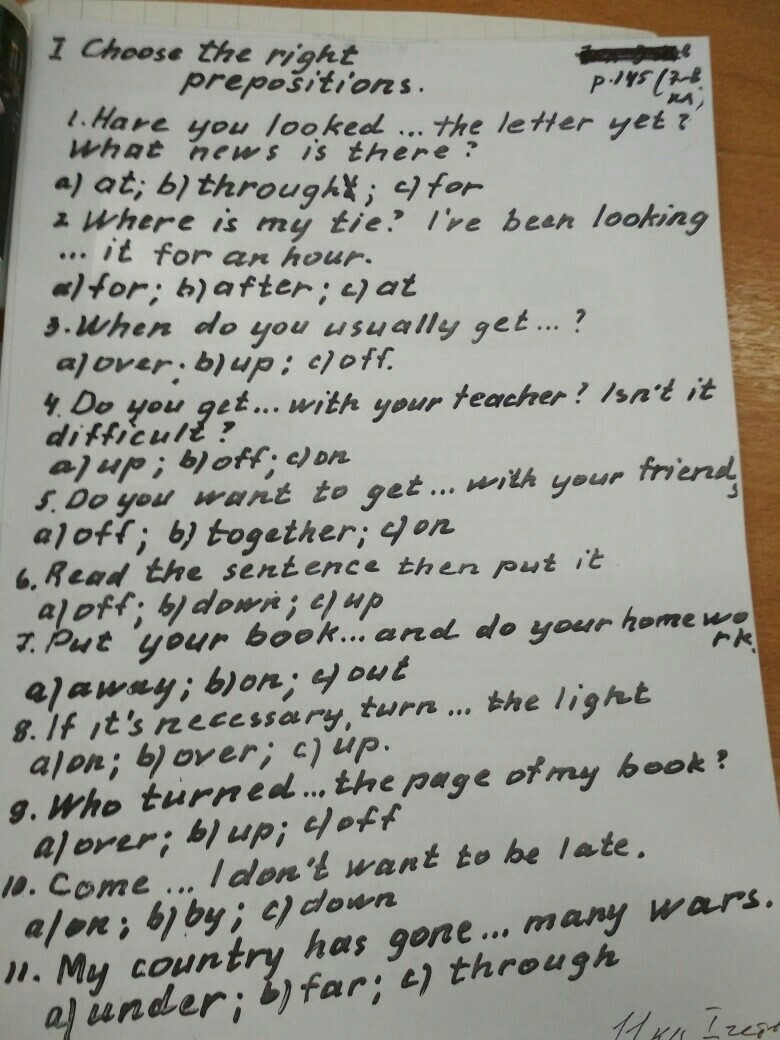 I Choose the right
prepositions.
p.145 (7-8
кл)
1. Have you looked ... the letter yet?
What news is there?
a) at; b) through; c) for
2 Where is my tie? I've been looking
... it for an hour.
a) for; b) after; c) at
3. When do you usually get ... ?
a) over; b) up; c) off.
4. Do you get ... with your teacher? Isn't it
difficult?
a) up; b) off; c) on
5. Do you want to get ... with your friends
a) off; b) together; c) on
6. Read the sentence then put it
a) off; b) down; c) up
7. Put your book ... and do your homewo
rk.
a) away; b) on; c) out
8. If it's necessary, turn ... the light
a) on; b) over; c) up.
9. Who turned ... the page of my book?
a) over; b) up; c) off
10. Come ... I don't want to be late.
a) on; b) by; c) down
11. My country has gone ... many wars.
a) under; b) far; c) through
11 кл I